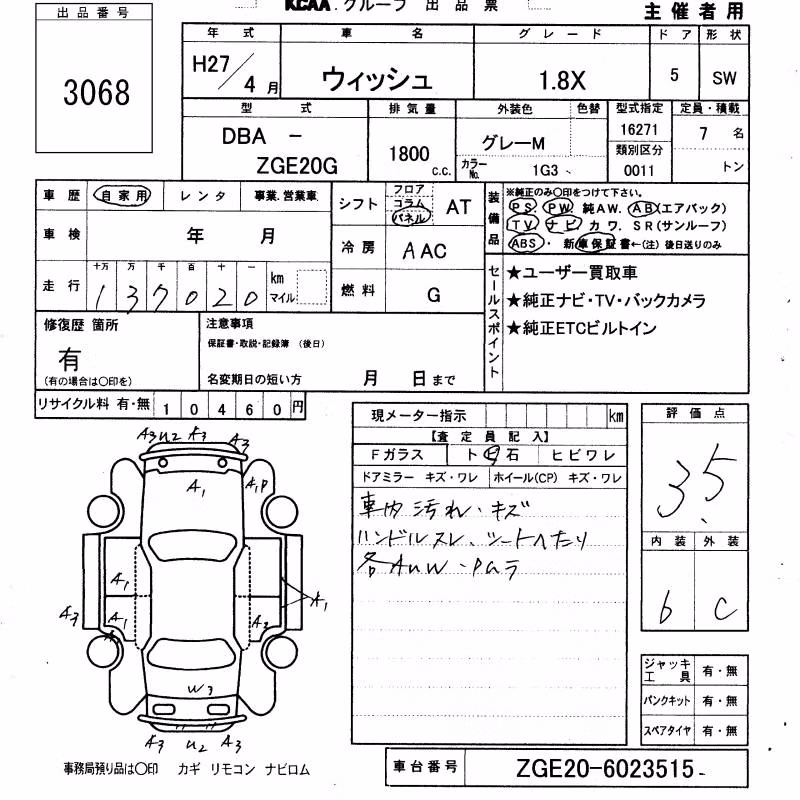 KCAA.グループ 出品票
主催者用
出品番号
3068
年式 車名 グレード ドア 形状
H27/4月 ウィッシュ 1.8X 5 SW
型式 排気量 外装色 色替 型式指定 定員・積載
DBA - ZGE20G
1800 c.c.
グレーM
カラーNo. 1G3
16271
類別区分
0011
7 名
トン
車歴 自家用 レンタ 事業.営業車
シフト フロア コラム パネル AT
車検 年 月
冷房 AAC
走行 十万 万 千 百 十 一
137020 km マイル
燃料 G
装備品
※純正のみ〇印をつけて下さい。
PS. PW. 純AW. AB(エアバック)
TV. ナビ カワ. SR(サンルーフ)
ABS・ 新車保証書←(注) 後日送りのみ
セールスポイント
★ユーザー買取車
★純正ナビ・TV・バックカメラ
★純正ETCビルトイン
修復歴 箇所
有
(有の場合は〇印を)
注意事項
保証書・取説・記録簿 (後日)
名変期日の短い方 月 日まで
リサイクル料 有・無 10460円
現メーター指示 km
【査定員記入】
Fガラス ト ビ 石 ヒビワレ
ドアミラー キズ・ワレ ホイール(CP) キズ・ワレ
車内汚れ・キズ
ハンドルスレ、シートへたり
各AUW・PGラ
評価点
3.5
内装 外装
b C
A3 U2 A3 A3
A1 A1P
A1
A3 A1 A2 A1
W3
A3 U2 A3
ジャッキ工具 有・無
パンクキット 有・無
スペアタイヤ 有・無
事務局預り品は〇印 カギ リモコン ナビロム
車台番号 ZGE20-6023515